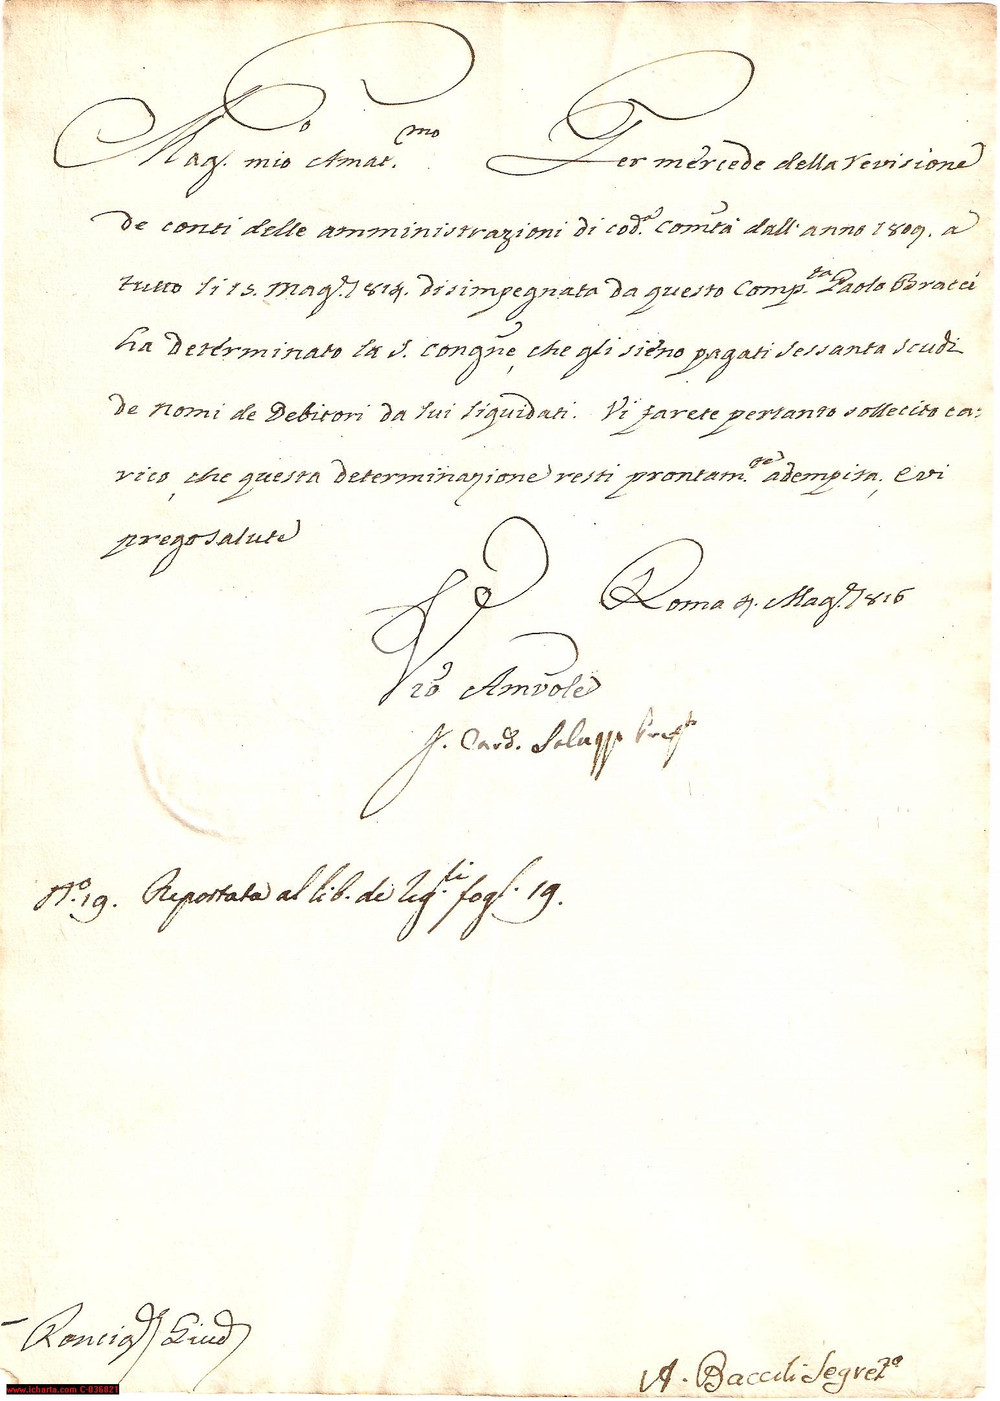 Mag.co mio Amat.mo Per mercede della revisione
de conti delle amministrazioni di cod.a Com̃tà dall'anno 1809. a
tutto li 15. Mag.o 1814. disimpegnata da questo Comp.ta Paolo Bracci
ha determinato la S. Congñe, che gli sieno pagati sessanta scudi
de nomi de Debitori da lui liquidati. Vi farete pertanto sollecito ca:
rico, che questa determinazione resti prontam.te adempita, e vi
prego salute
Roma 4. Mag.o 1816
Vr̃o Am̃vole
G. Card. Saluzzo Pref.to
N.o 19. Reportata al lib. de reg.li fogl. 19.
Roncig.e Giud
A. Baccili Segret.ro
www.icharta.com C-036821